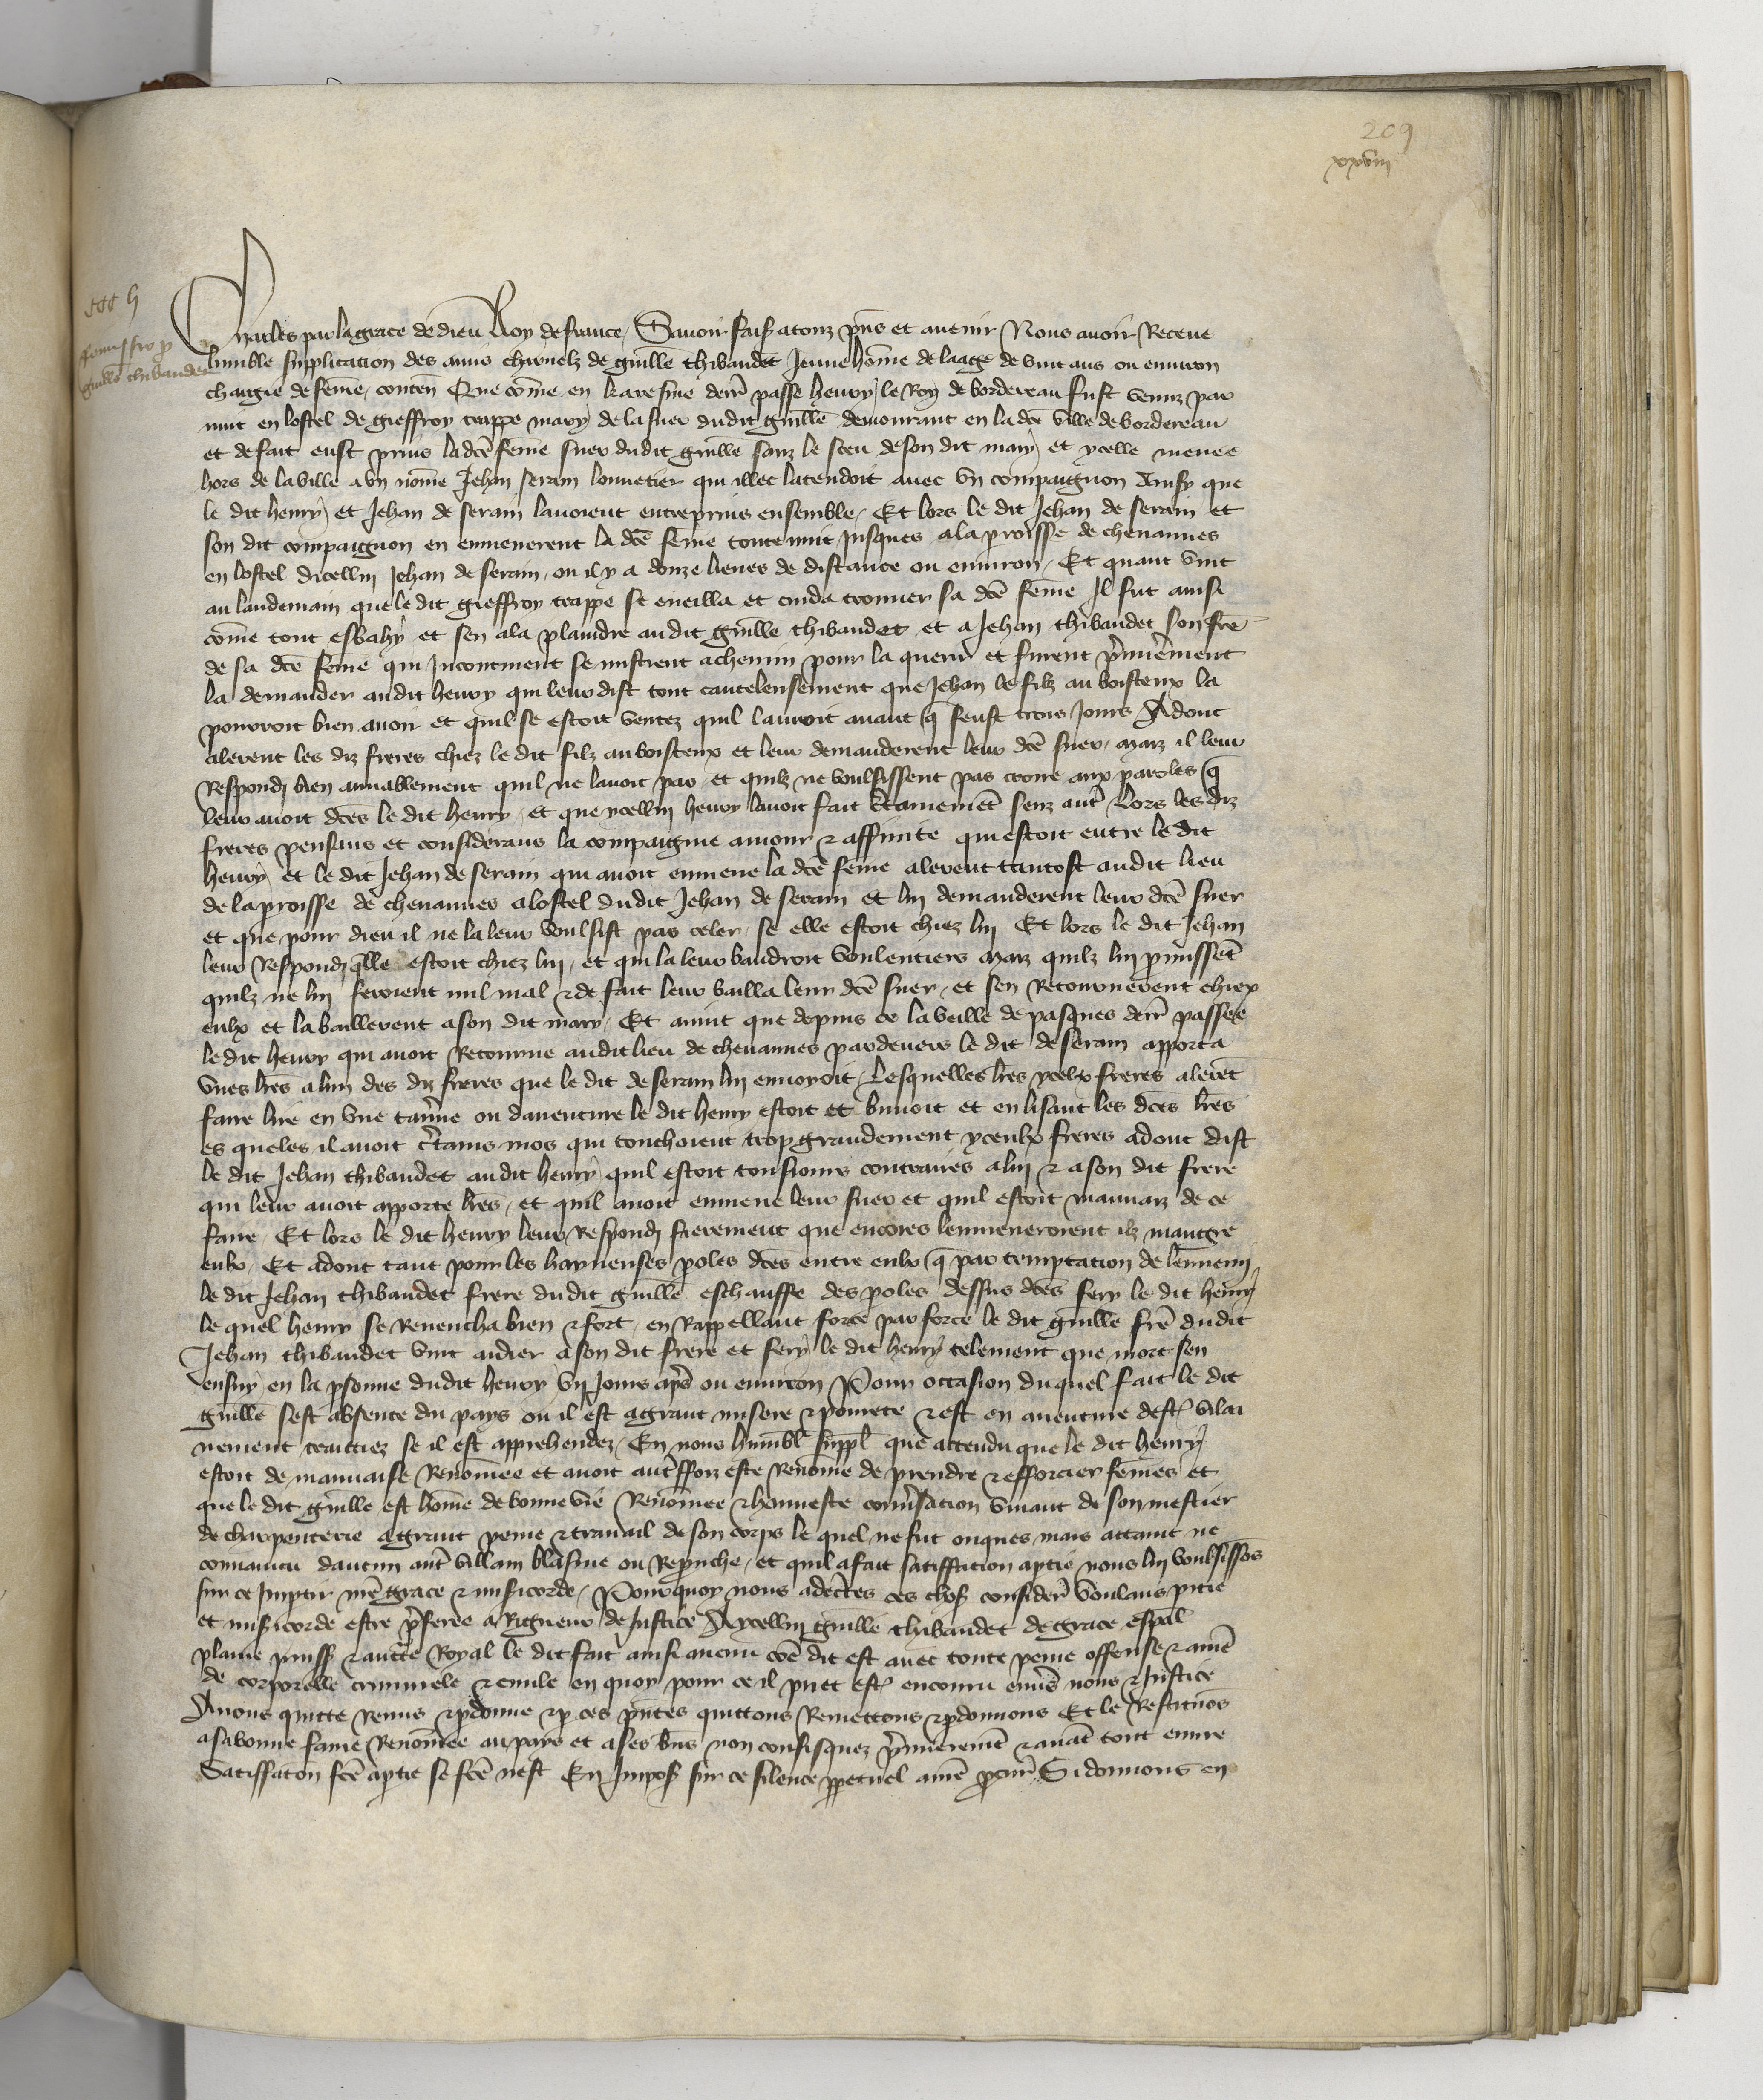 209
xxviii
remissio p
guille thibaudet
Charles par la grace de dieu Roy de france, Savoir faiss a touz pns et avenir Nous avoir Receue
lumble supplication des amis charnelz de guille thibaudet Jeune home de laage de vint ans ou environ
chargie de feme, conten Que come en karesme derr passe henry le Roy de bordereau fust venuz par
nuit en lostel de gieffroy trappe mary de la suer dudit guille demourant en la dce ville de bordereau
et de fait eust prins ladce feme suer dudit guille sanz le sceu de son dit mary et ycelle menee
hors de la ville a un nome Jehan serain bonnetier qui illec latendoit avec un compaignon Ainsy que
le dit henry et Jehan de serain lavoient entreprins ensemble, Et lors le dit Jehan de serain et
son dit compaignon en enmenerent la dce feme toute nuit jusques a la proisse de chevannes
en lostel dicelluy Jehan de serain, ou il y a douze lieues de distance ou environ, Et quant vint
au landemain que le dit gieffroy trappe se esveilla et cuida trouver sa dce feme Il fut ainsi
come tout esbahy et sen ala plaindre au dit guille thibaudet et a Jehan thibaudet son fre
de sa dce feme qui Incontinent se mistrent a chemin pour la querir et furent premierement
la demander audit henry qui leur dist tout cauteleusement que Jehan le filz au boisteux la
pourroit bien avoir et quil se estoit ventez quil lauroit avant q feust trois jours Adont
alerent les diz freres chiez le dit filz au boisteux et leur demanderent leur dce suer, maiz il leur
Respondi bien amiablement quil ne lavoit pas et quilz ne voulsissent pas croire aux paroles q
leur avoit dces le dit henry, et que ycelluy henry lavoit fait ctainemet senz autr Lors les diz
freres pensans et considerans la compaignie amour & affinite qui estoit entre le dit
henry et le dit Jehan de serain qui avoit enmene la dce feme alerent tantost audit lieu
de la proisse de chevannes a lostel dudit Jehan de serain et lui demanderent leur dce suer
et que pour dieu il ne la leur voulsist pas celer, se elle estoit chiez luy Et lors le dit Jehan
leur Respondi qlle estoit chiez luy, et qui la leur bauldroit voulentiers maiz quilz luy promissent
quilz ne luy feroient nul mal & de fait leur bailla leur dce suer, et sen Retournerent chiex
eulx et la baillerent a son dit mary, Et avint que depuis ce la veille de pasques derr passee
le dit henry qui avoit Retourne audit lieu de chevannes pardevers le dit de serain apporta
unes lres a lun des diz freres que le dit de serain luy envoyoit, Lesquelles lres yceulx freres aleret
faire lire en une taverne ou daventure le dit henry estoit et buvoit et en lisant les dces lres
es queles il avoit ctains mos qui touchoient trop grandement yceulx freres adont dist
le dit Jehan thibaudet au dit henry quil estoit tousjours contraires a luy & a son dit frere
qui leur avoit apporte lres, et quil avoit enmene leur suer et quil estoit mauvaiz de ce
faire, Et lors le dit henry leur Respondi fierement que encores lenmeneroient ilz maugre
eulx, Et adont tant pour les haynenses poles dces entre eulx q par temptation de lennemi
le dit Jehan thibaudet frere dudit guille eschauffe des poles dessus dces fery le dit henry
le quel henry se Revencha bien & fort, en Rappellant force par force le dit guille fre dudit
Jehan thibaudet vint aidier a son dit frere et fery le dit henry telement que mort sen
ensuy en la psonne dudit henry vij jours aps ou environ Pour occasion duquel fait le dit
guille sest absente du pays ou il est a grant misere & povrete & est en aventure destr vilai
nement traittiez se il est apprehendez, En nous humbl suppl que attendu que le dit henry
estoit de mauvaise Renomee et avoit autrffoiz este Renome de prendre & efforcier femes et
que le dit guille est home de bonne vie Renomee & honneste conversation vivant de son mestier
de charpenterie a grant peine & travail de son corps le quel ne fut onques mais attaint ne
convaincu daucun autr villain blasme ou Reprouche, et quil a fait satiffation a ptie nous luy voulsissos
sur ce Impartir nre grace & misicorde, Pourquoy nous adcertes ces choss considers voulans pitie
et misicorde estre preferee a Rigueur de Justice A ycelluy guille thibaudet de grace espal
plaine puiss & auctte Royal le dit fait ainsi avenu coe dit est avec toute peine offense & ame
de corporelle criminele & civile en quoy pour ce il puet estr encouru envers nous & Justice
Avons quitte remis & pdonne & p ces pntes quittons Remettons & pdonnons Et le Restituos
a sa bonne fame Renomee au pays et a ses bns non confisquez premierement & avat tout euvre
Satiffaton fce a ptie se fce nest En Impos sur ce silence ppetuel a nre procur Si donnons en